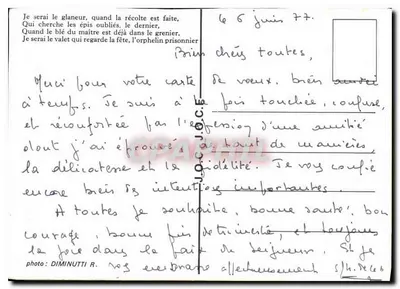 Je serai le glaneur, quand la récolte est faite,
Qui cherche les épis oubliés, le dernier,
Quand le blé du maître est déjà dans le grenier,
Je serai le valet qui regarde la fête, l'orphelin prisonnier
le 6 juin 77.
Bien chères toutes,
Merci pour votre carte de vœux, bien
à temps. Je suis à la fois touchée, confuse,
et réconfortée par l'expression d'une amitié
dont j'ai éprouvé de manières
la délicatesse et la fidélité. Je vous confie
encore bien des intentions importantes.
A toutes je souhaite, bonne santé, bon
courage, bonne fin de et toujours
la joie dans la paix du Seigneur. Et je
vos affectueusement
photo : DIMINUTTI R.
J.O.C. J.O.C.F.